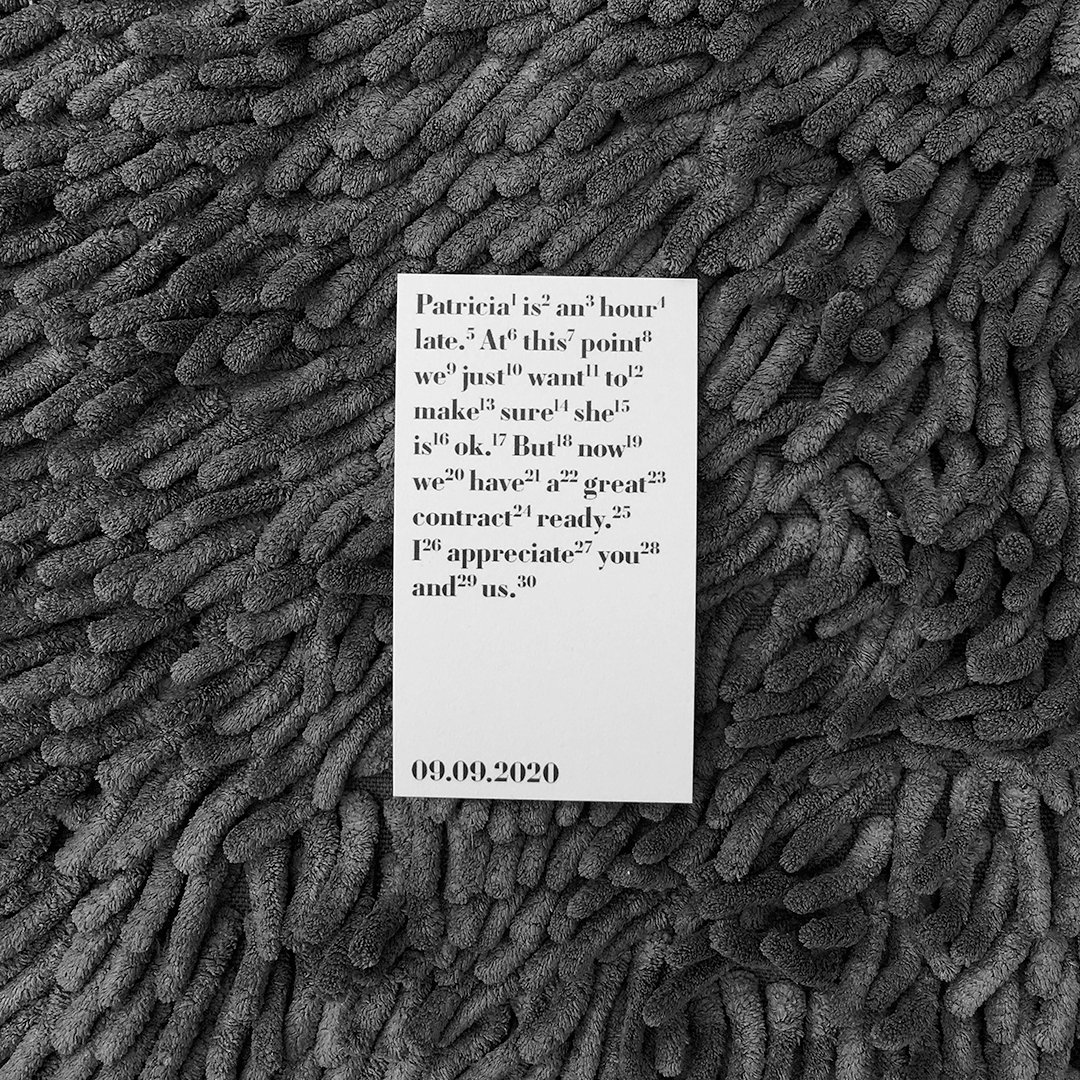 Patricia¹ is² an³ hour⁴
late.⁵ At⁶ this⁷ point⁸
we⁹ just¹⁰ want¹¹ to¹²
make¹³ sure¹⁴ she¹⁵
is¹⁶ ok.¹⁷ But¹⁸ now¹⁹
we²⁰ have²¹ a²² great²³
contract²⁴ ready.²⁵
I²⁶ appreciate²⁷ you²⁸
and²⁹ us.³⁰
09.09.2020